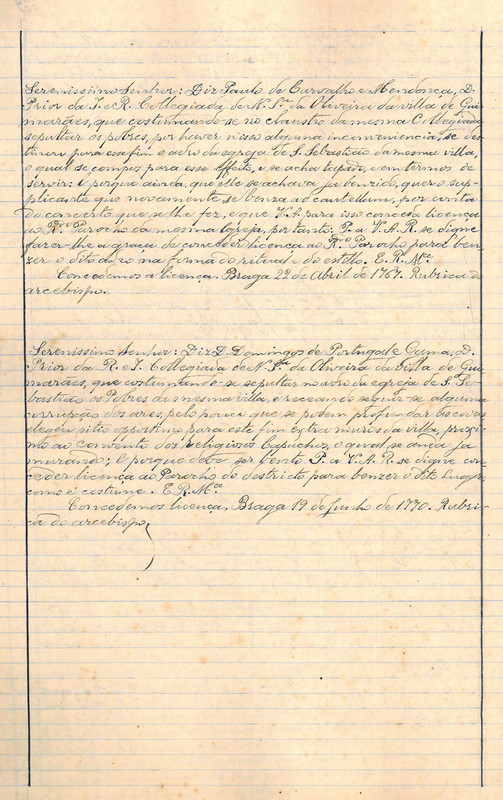 Serenissimo Senhor: Diz Paulo de Carvalho e Mendonça, D.
Prior da I. e R. Collegiada de N. Sra. da Oliveira da villa de Gui-
marães, que costumando-se no claustro da mesma Collegiada
sepultar os pobres, por haver nisso alguma inconveniencia, se des-
tinou para esse fim o adro da egreja de S. Sebastião da mesma villa,
o qual se compos para esse effeito, e se acha tapado, e em termos de
servir: E porque ainda, que elle se achava já benzido, quer o sup-
plicante que novamente se benza ad cautellum, por conta
do concerto que se lhe fez, e que V. A. para isso conceda licença
ao Rdo. Parocho da mesma Igreja, por tanto: P. a V. A. R. se digne
fazer-lhe a graça de conceder licença ao Rdo. Parocho para ben-
zer o dito adro na forma do ritual e do estillo. E. R. Mce.
Concedemos a licença. Braga 22 de Abril de 1767. Rubrica do
arcebispo.
Serenissimo Senhor: Diz D. Domingos de Portugal e Gama, D.
Prior da R. e I. Collegiada de N. Sra. da Oliveira da villa de Gui-
marães, que costumando-se sepultar no adro da egreja de S. Se-
bastião os Pobres da mesma villa, e receando seguir-se alguma
corrupção dos ares, pelo pouco que se podem profundar as covas
elegeu sitio opportuno para este fim extra muros da villa, proxi-
mo ao convento dos religiosos Capuchos, o qual se anda já
murando; E porque deve ser bento P. a V. A. R. se digne con-
ceder licença ao Parocho do destricto para benzer o dito Lugar,
como é costume. E. R. Mce.
Concedemos licença. Braga 19 de Junho de 1770. Rubri-
ca do arcebispo.